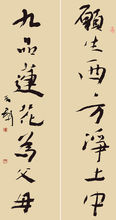 願生西方淨土中
九品蓮花為父母